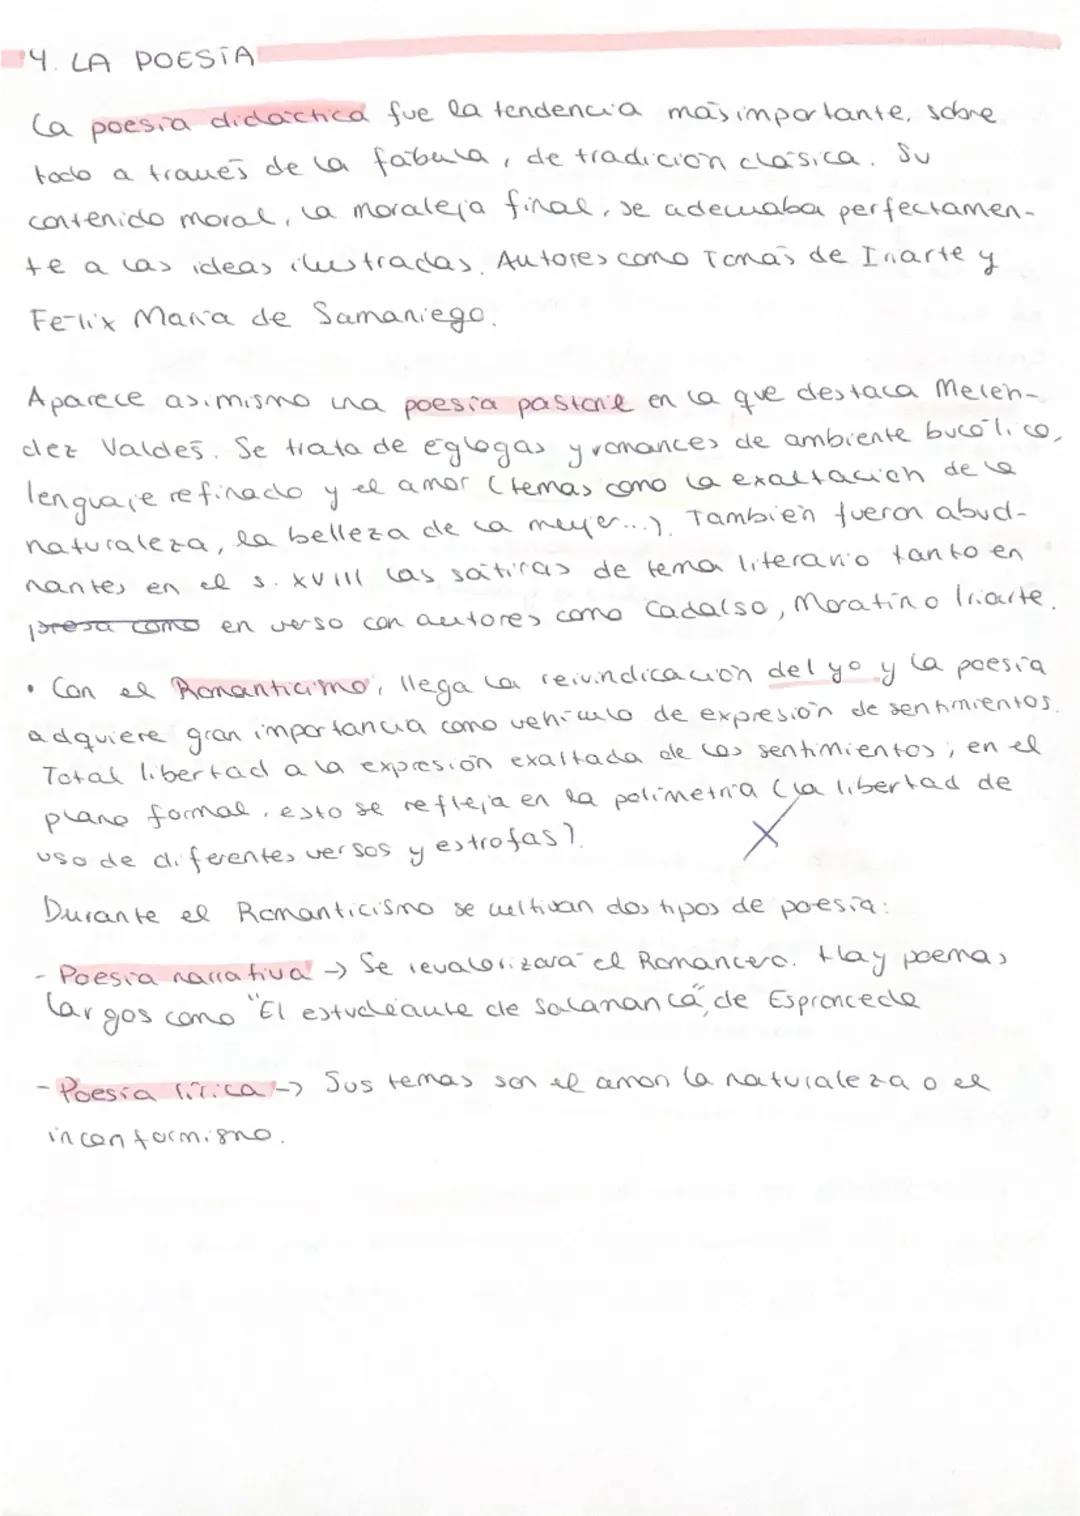 4. LA POESÍA
La poesía didáctica fue la tendencia más importante, sobre
todo a través de la fábula, de tradición clásica. Su
contenido moral, la moraleja final, se adecuaba perfectamen-
te a las ideas ilustradas. Autores como Tomás de Iriarte y
Félix María de Samaniego.
Aparece asimismo una poesía pastoril en la que destaca Melén-
dez Valdés. Se trata de églogas y romances de ambiente bucólico,
lenguaje refinado y el amor (temas como la exaltación de la
naturaleza, la belleza de la mujer...). También fueron abud-
nantes en el s. XVIII las sátiras de tema literario tanto en
presa como en verso con autores como Cadalso, Moratín o Iriarte.
• Con el Romanticismo, llega la reivindicación del yo y la poesía
adquiere gran importancia como vehículo de expresión de sentimientos.
Total libertad a la expresión exaltada de los sentimientos; en el
plano formal, esto se refleja en la polimetría (la libertad de
uso de diferentes versos y estrofas).
Durante el Romanticismo se cultivan dos tipos de poesía:
- Poesía narrativa -> Se revalorizará el Romancero. Hay poemas
largos como "El estudiante de Salamanca", de Espronceda
- Poesía lírica -> Sus temas son el amor la naturaleza o el
inconformismo.